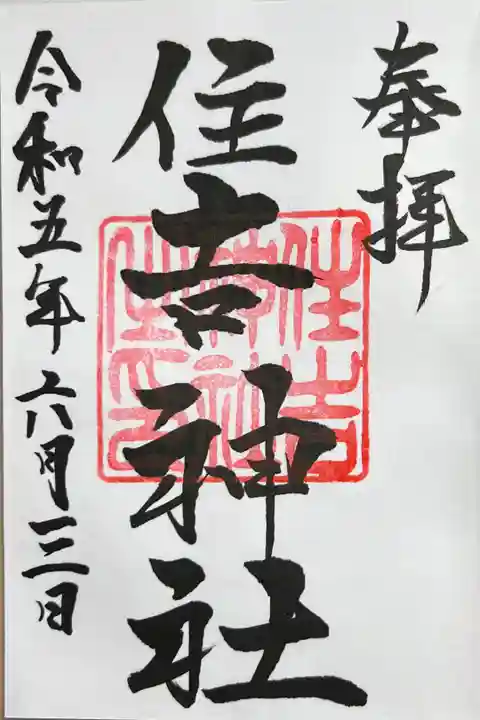 奉拝
住吉神社
住吉
神社
之印
令和五年六月三日